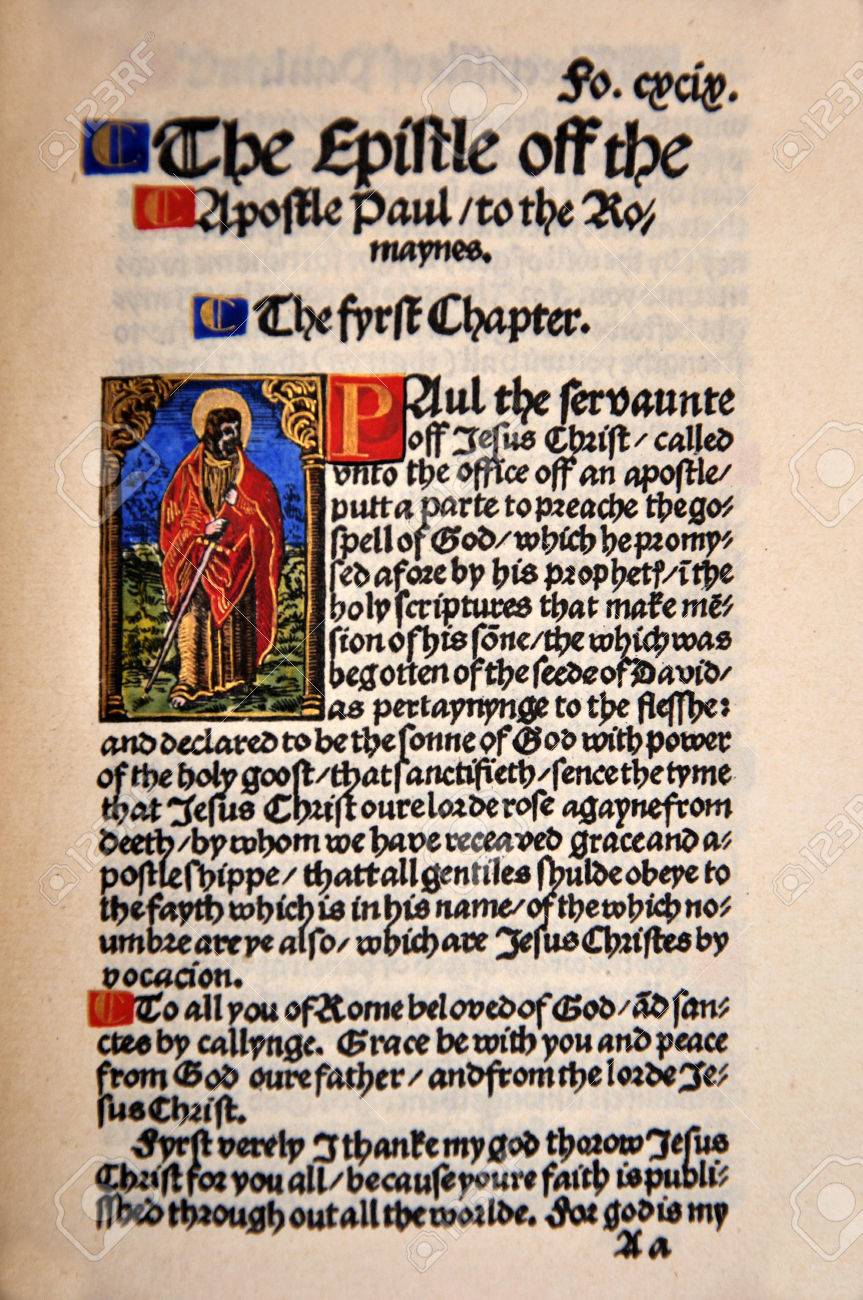 Fo. cxcix.
The Epistle off the
Apostle Paul / to the Ro⸗
maynes.
The fyrst Chapter.
PAul the servaunte
off Jesus Christ / called
vnto the office off an apostle /
putt a parte to preache the go⸗
spell of God / which he promy⸗
sed afore by his prophetꝭ / ī the
holy scriptures that make mē⸗
sion of his sōne / the which was
begotten of the seede of David /
as pertaynynge to the flesshe:
and declared to be the sonne of God with power
of the holy goost / that sanctifieth / sence the tyme
that Jesus Christ oure lorde rose agayne from
deeth / by whom we have receaved grace and a⸗
postleshippe / thatt all gentiles shulde obeye to
the fayth which is in his name / of the which no⸗
umbre are ye also / which are Jesus Christes by
vocacion.
To all you of Rome beloved of God / ād san⸗
ctes by callynge. Grace be with you and peace
from God oure father / and from the lorde Je⸗
sus Christ.
Fyrst verely I thanke my god thorow Jesus
Christ for you all / because youre faith is publi⸗
sshed through out all the worlde. For god is my
A a
123RF